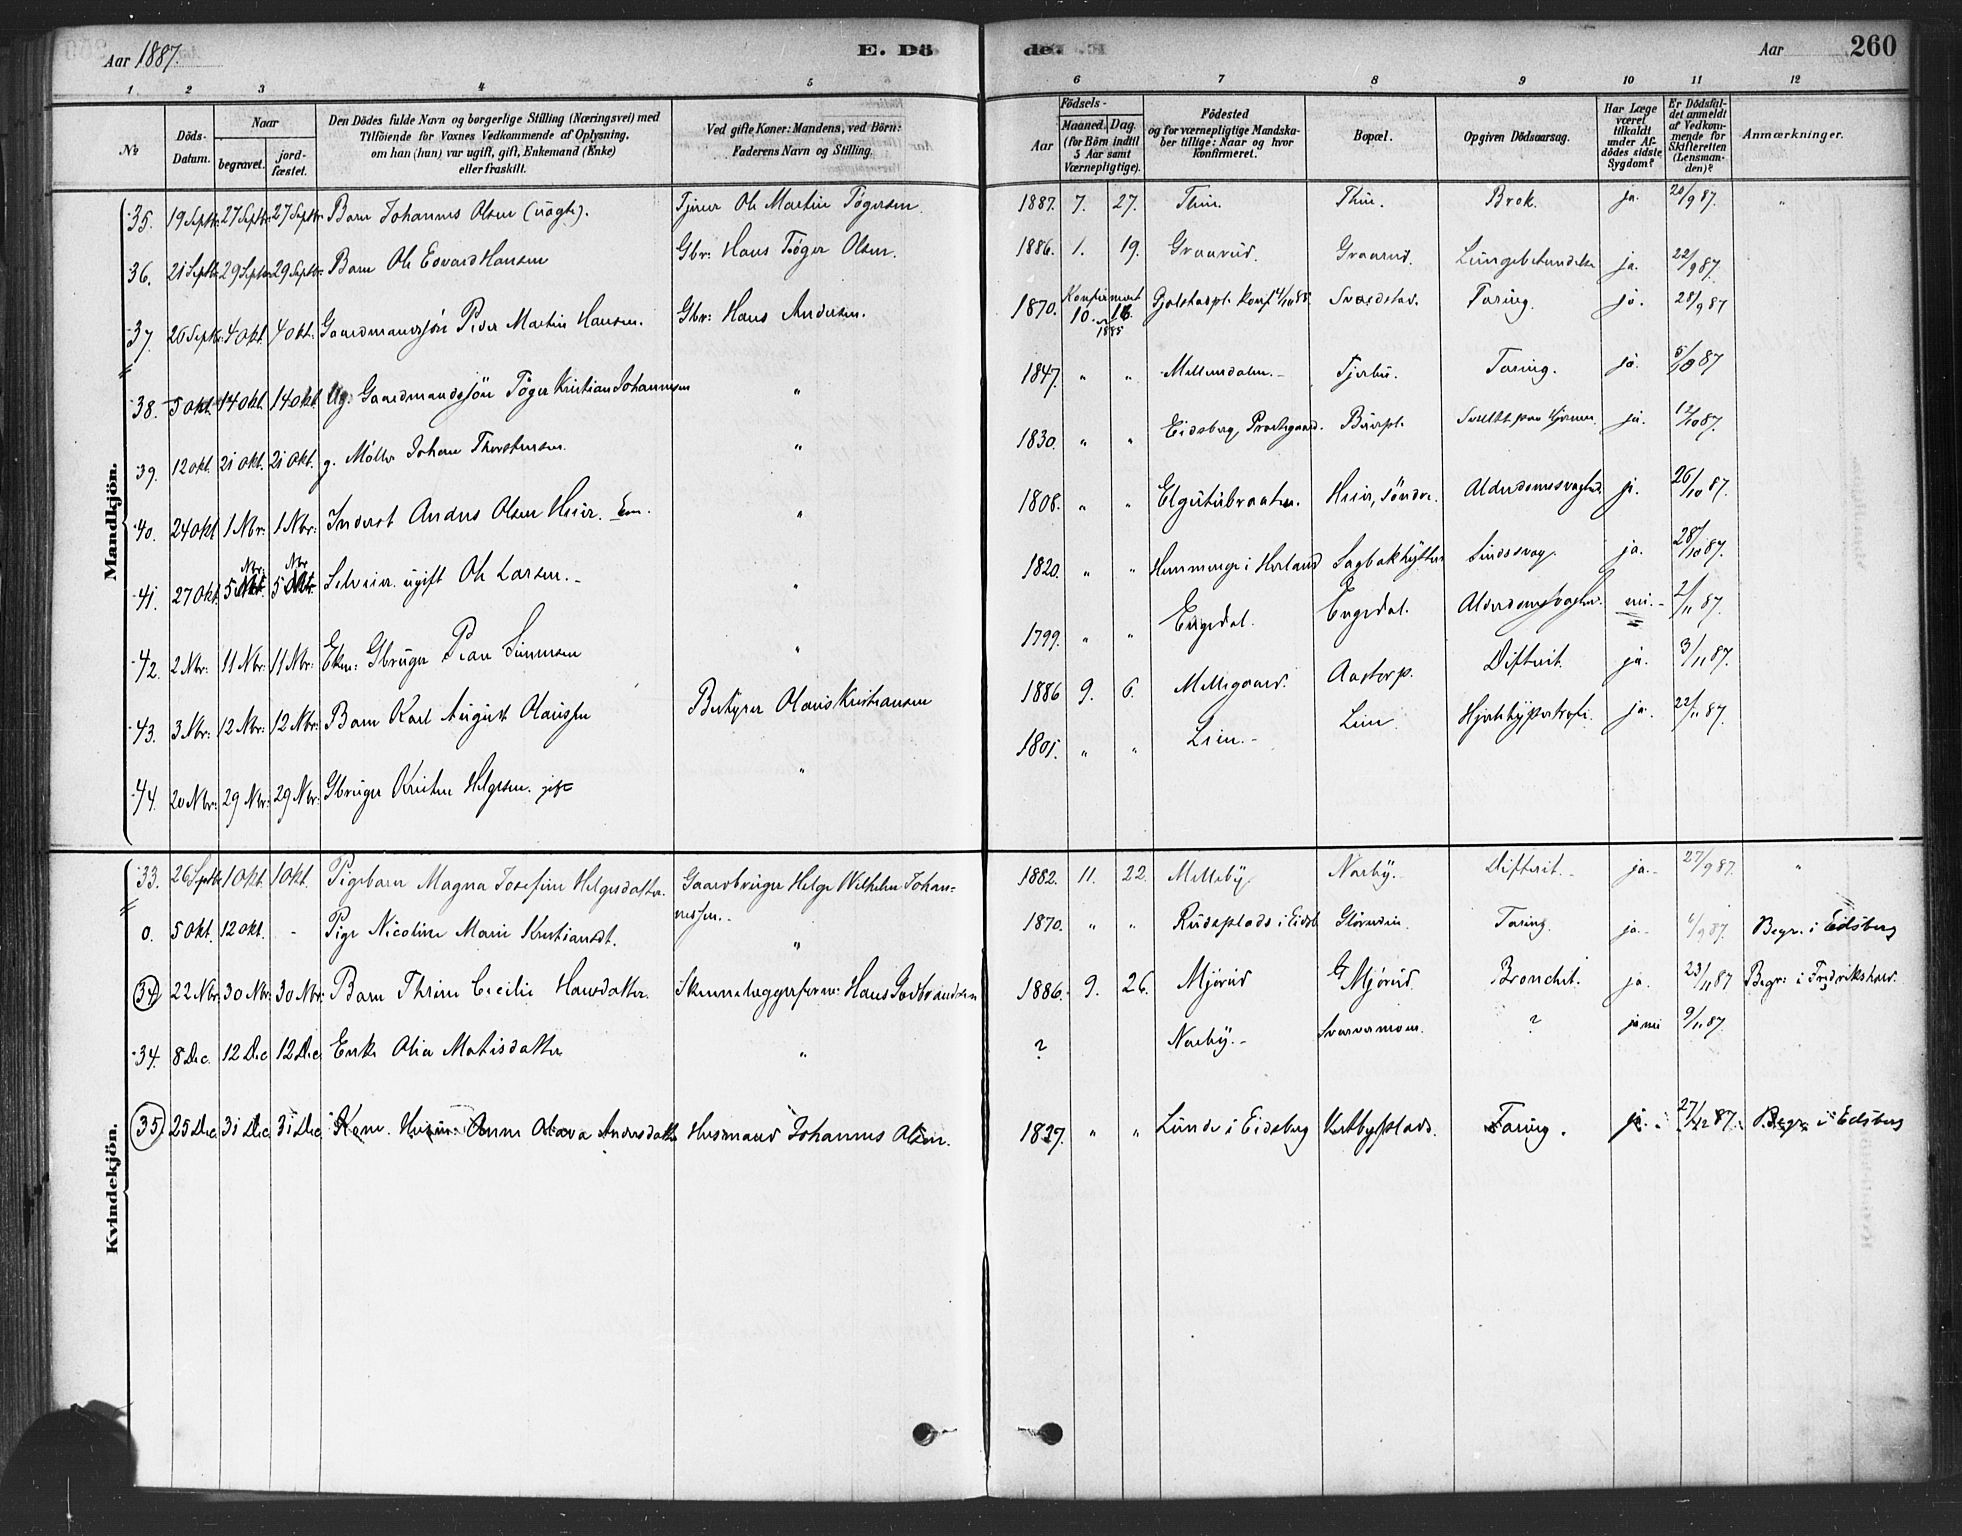 Aar 1887. E. Dö de. Aar 260
1 2 3 4 5 6 7 8 9 10 11 12
No Döds-Datum. Naar begravet. jord-fæstet. Den Dödes fulde Navn og borgerlige Stilling (Næringsvei) med Tilföiende for Voxnes Vedkommende af Oplysning, om han (hun) var ugift, gift, Enkemand (Enke) eller fraskilt. Ved gifte Koner: Mandens, ved Börn: Faderens Navn og Stilling. Födsels- Aar Maaned. Dag. (for Börn indtil 5 Aar samt Værnepligtige). Födested og for værnepligtige Mandska-ber tillige: Naar og hvor konfirmeret. Bopæl. Opgiven Dödsaarsag. Har Læge været tilkaldt under Af-dödes sidste Sygdom? Er Dödsfal-det anmeldt af Vedkom-mende for Skifteretten (Lensman-den)? Anmærkninger.
Mandkjön.
35. 19 Septbr. 27 Septbr. 27 Septbr. Barn Johannes Olsen (uægte). Tjener Ole Martin Tøgersen. 1887. 7. 27. Thin. Thin. Brok. ja. 20/9 87. "
36. 21 Septbr. 29 Septbr. 29 Septbr. Barn Ole Edvard Hansen Gbr: Hans Tøger Olsen. 1886. 1. 19. Graarud. Graarud. Lungebetændelse ja. 22/9 87.
37. 26 Septbr. 4 Okt. 4 Okt. Gaardmandssøn Peder Martin Hansen. Gbr: Hans Andersen. 1870. Konfirmert 10. 16. 1885 konf 4/10 85. Tæring. ja. 28/9 87
38. 5 Okt. 14 Okt. 14 Okt. Ug. Gaardmandssøn Tøger Kristian Johannesen " 1847. " " Tæring. ja. 5/10 87
39. 12 Okt. 21 Okt. 21 Okt. g. Møller Johan Thorstensen. " 1830. " " Eidsberg Præstegaard. ja. 12/10 87.
40. 24 Okt 1 Nbr: 1 Nbr: Inderst Anders Olsen Heier. Em. " 1808. " " Heier, søndre. Alderdomssvaghed. ja. 26/10 87.
41. 27 Okt. 5 Nbr. 5 Nbr. Selveier ugift Ole Larsen. " 1820. " " ja. 28/10 87.
42. 2 Nbr: 11 Nbr: 11 Nbr: Ekm: Gbruger Peder Simensen " 1799. " " Engedal. Engedal. Alderdomssvaghed. nei. 2/11 87.
43. 3 Nbr: 12 Nbr: 12 Nbr: Barn Karl August Olaussen Bestyrer Olaus Kristiansen 1886 9. 6. Mellegaard. Aastorp. Difterit. ja. 3/11 87.
44. 20 Nbr: 29 Nbr: 29 Nbr: Gbruger Kristen Helgesen. gift " 1801. " " Lein. Lein. Hjertehypertrofi. ja. 22/11 87.
Kvindekjön.
33. 26 Septbr 1 Okt. 1 Okt. Pigebarn Magna Josefine Helgesdatter. Gaardbruger Helge Wilhelm Johan-
nessen. 1882. 11. 22. Melleby. Narby. Difterit. ja. 27/9 87. "
0. 5 Okt. 12 Okt. - Pige Nicoline Marie Kristiansdt. " 1870. " " Rudsplads i Eidsb. Tæring. ja. Begr. i Eidsberg
34 22 Nbr. 30 Nbr. 30 Nbr: Barn Thrine Cecilie Hansdatter. Skinnelæggerform: Hans Gudbrandsen 1886. 9. 26. Mjørud G Mjørud. Bronchit. ja. 23/11 87 Begr: i Fredrikshald.
34. 8 Dec. 12 Dec 12 Dec Enke Olia Mathisdatter " ? Narby. ? 9/11 87.
35 25 Dec 31 Dec 31 Dec Kone. Anne Olava Andersdatter Husmand Johannes Olsen. 1827. " " Lunde i Eidsberg Tæring. ja. 27/12 87. Begr. i Edsberg